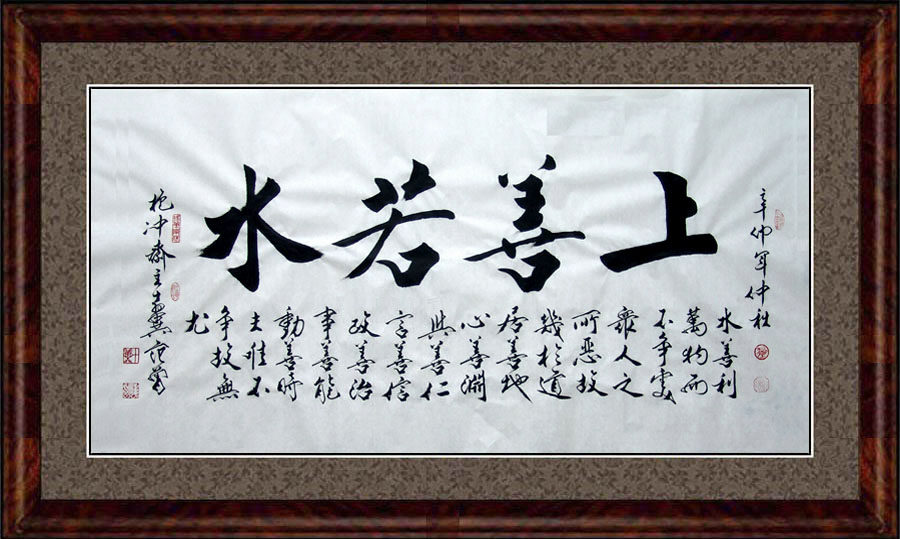 辛卯年仲秋
上善若水
水善利
萬物而
不爭處
衆人之
所惡故
幾於道
居善地
心善淵
與善仁
言善信
政善治
事善能
動善時
夫唯不
爭故無
尤
抱冲齋主